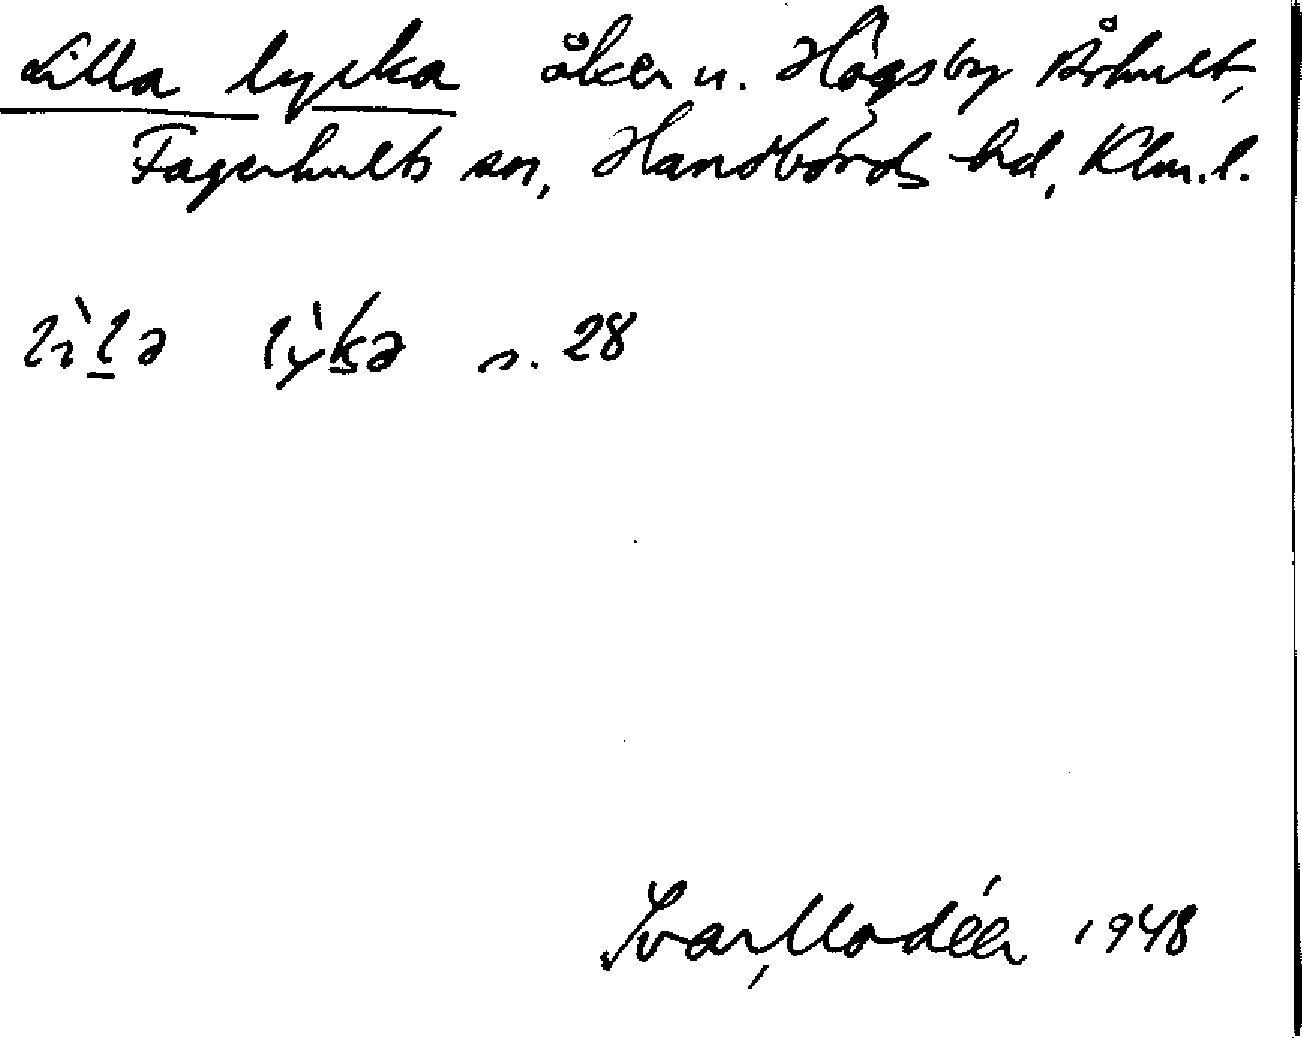 Lilla lycka åker u. Högsby Århult,
Fagerhults sn, Handbörds hd, Klm.l.
lìl̠ə lỳk̠ə s. 28
Ivar Modéer 1948